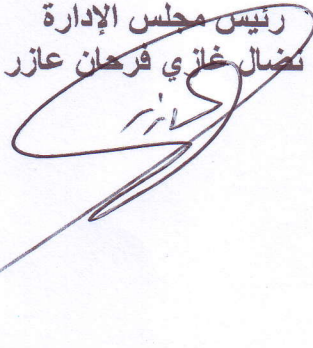 رئيس مجلس الإدارة
نضال غازي فرحان عازر